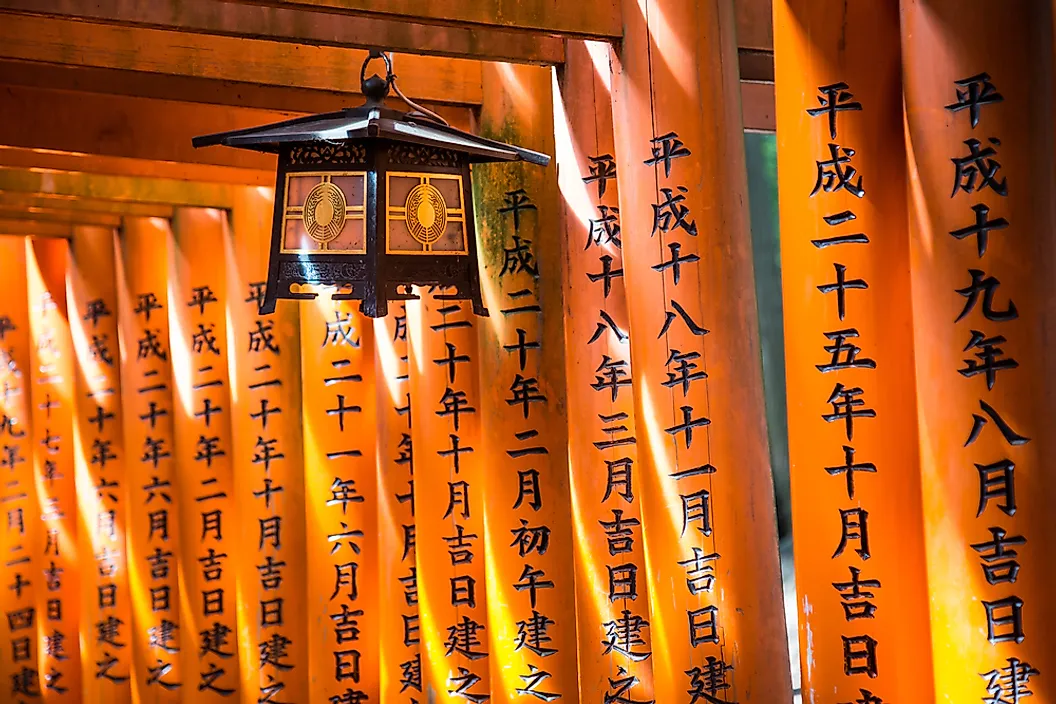 平成十九年八月吉日建
平成二十五年十月吉日建
平成十八年十一月吉日建
平成十八年三月吉日建之
平成二十年二月初午建之
二十年十月吉日建之
成二十一年六月吉日建
平成二十年十月吉日建之
平成二十年二月吉日建之
平成二十年六月吉日建之
平成二十年六月吉日建之
平成二十七年三月吉日建之
平成十九年二月二十四日建